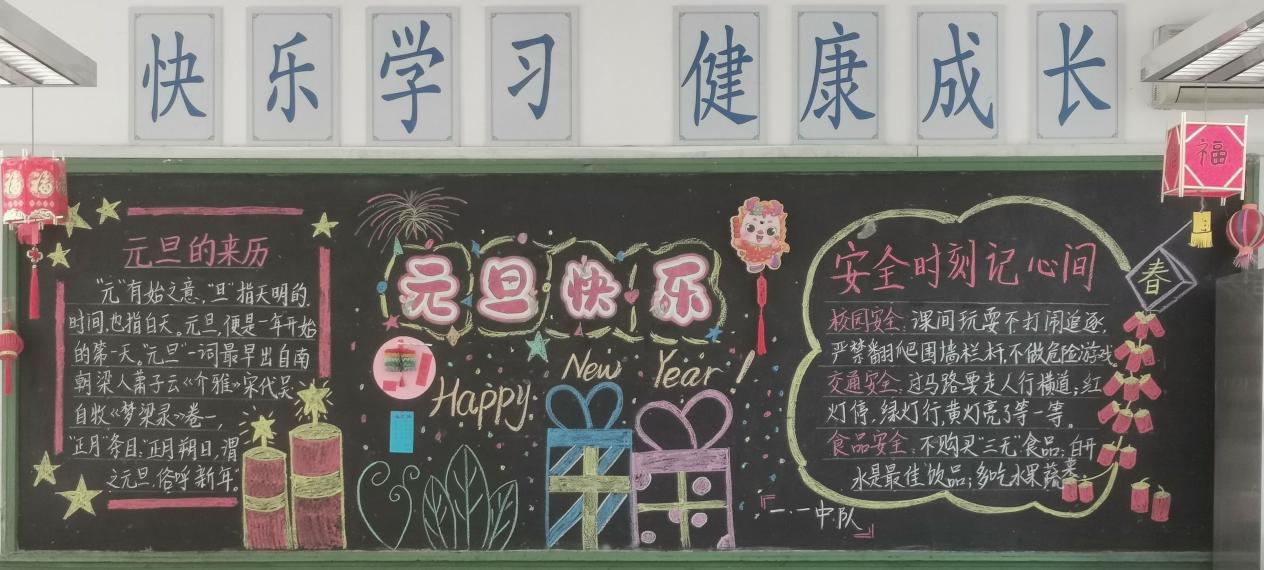 快乐学习 健康成长
元旦的来历
“元”有始之意，“旦”指天明的
时间，也指白天。元旦，便是一年开始
的第一天。“元旦”一词最早出自南
朝梁人萧子云《介雅》宋代吴
自牧《梦梁录》卷一，
“正月”条目：“正月朔日，谓
之元旦，俗呼新年。
元旦快乐
Happy New Year!
安全时刻记心间
校园安全：课间玩耍不打闹追逐，
严禁翻爬围墙栏杆，不做危险游戏
交通安全：过马路要走人行横道；红
灯停，绿灯行，黄灯亮了等一等。
食品安全：不购买“三无”食品；白开
水是最佳饮品；多吃水果蔬菜
『一.一中队』
春
福
旦
福
福